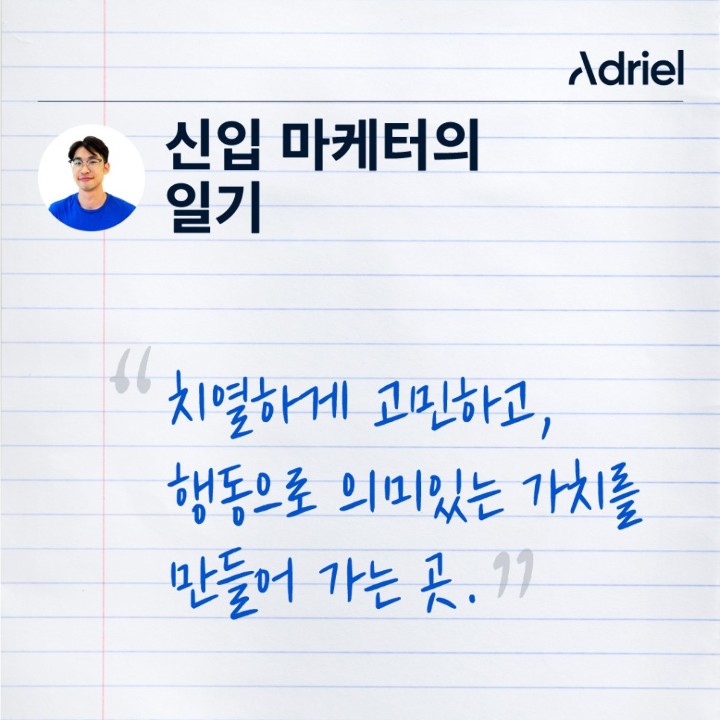 Adriel
신입 마케터의
일기
“치열하게 고민하고,
행동으로 의미있는 가치를
만들어 가는 곳.”